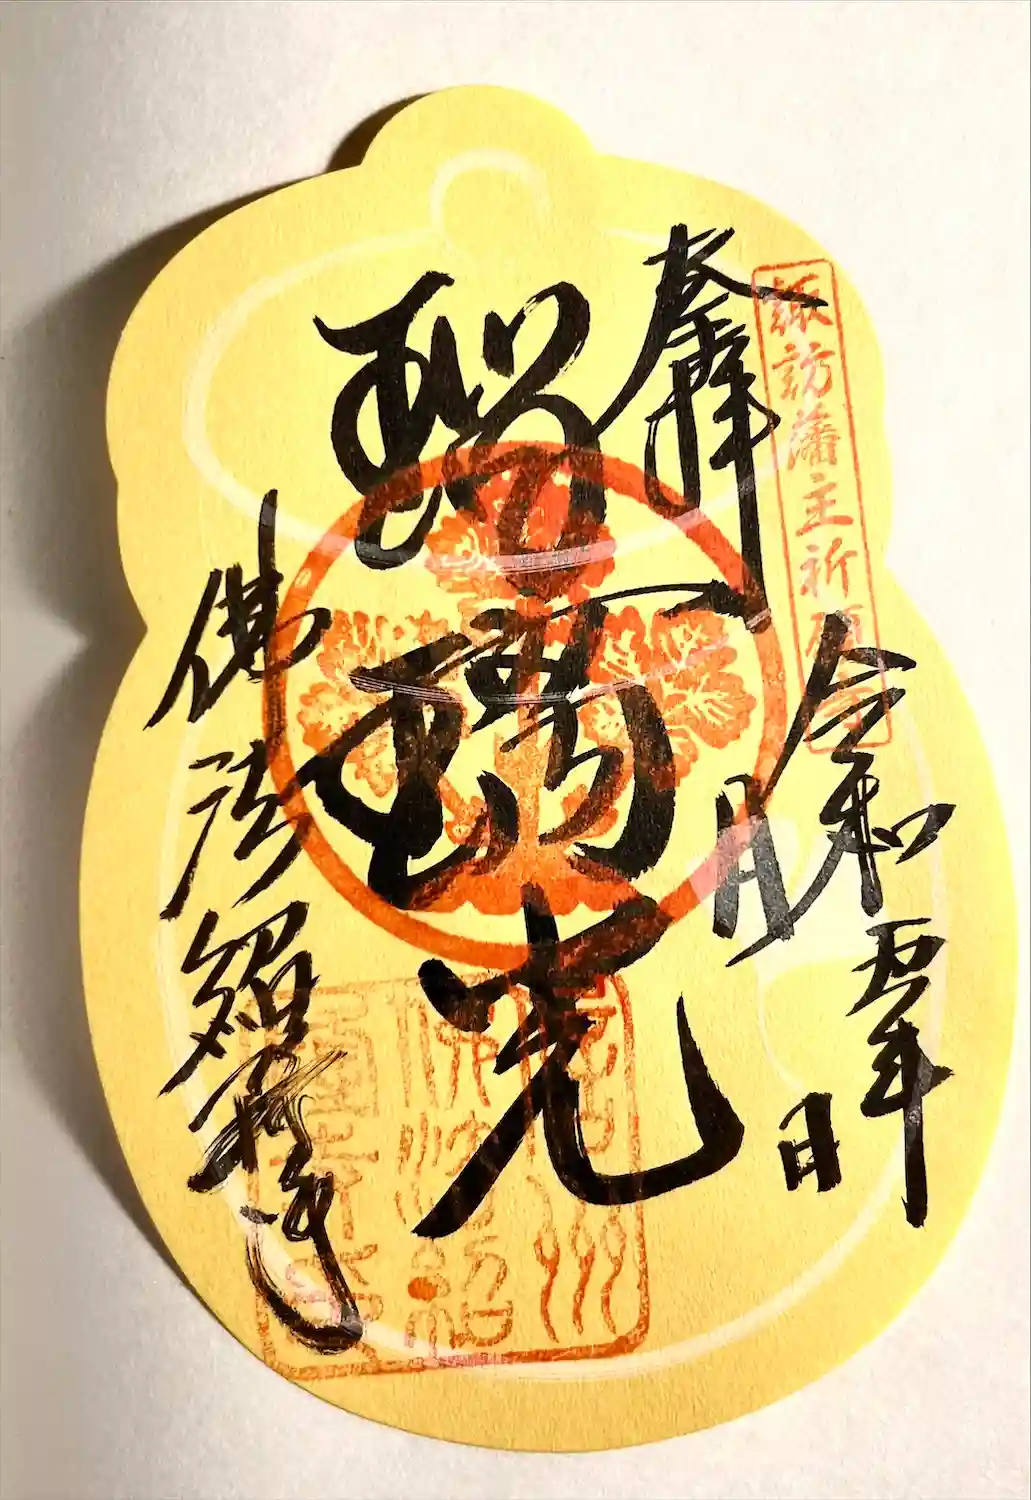 諏訪藩主祈願寺
奉拝
令和五年
月
日
瑠璃光
佛法紹隆寺